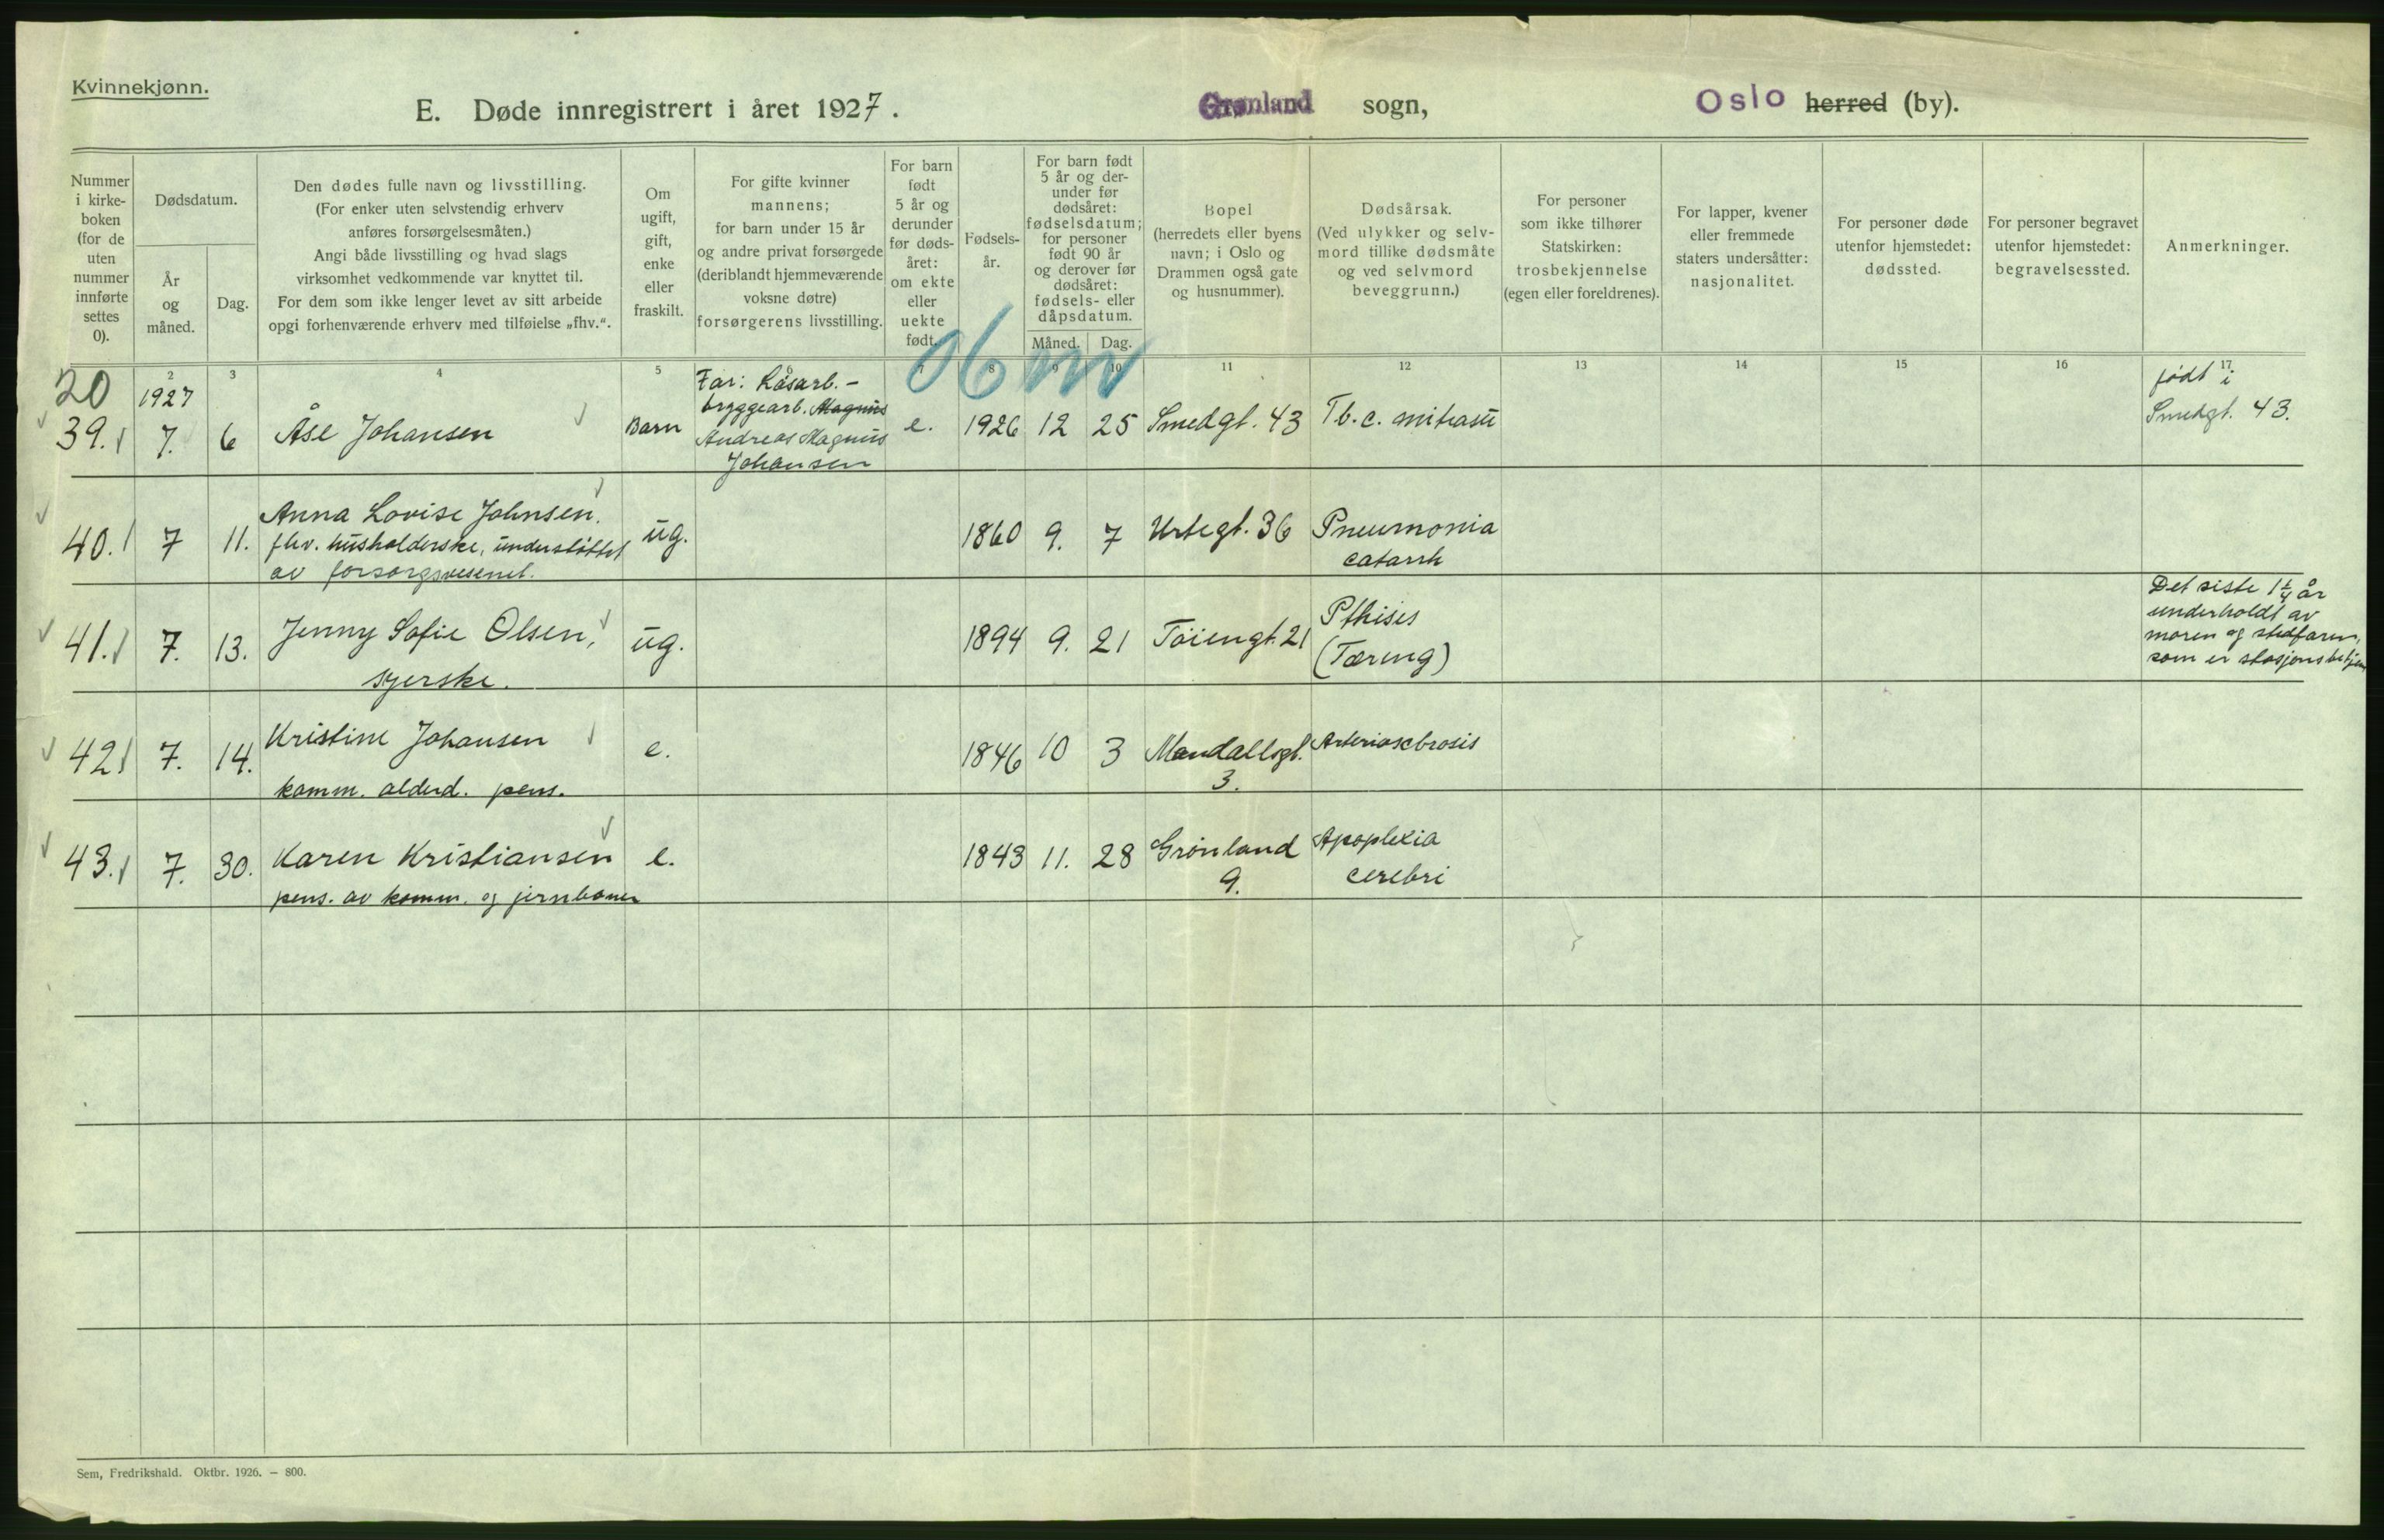 Kvinnekjønn.
E. Døde innregistrert i året 1927.
Grønland sogn,
Oslo herred (by).
Nummer
i kirke-
boken
(for de
uten
nummer
innførte
settes
0).
Dødsdatum.
År
og
måned.
Dag.
Den dødes fulle navn og livsstilling.
(For enker uten selvstendig erhverv
anføres forsørgelsesmåten.)
Angi både livsstilling og hvad slags
virksomhet vedkommende var knyttet til.
For dem som ikke lenger levet av sitt arbeide
opgi forhenværende erhverv med tilføielse „fhv.“.
Om
ugift,
gift,
enke
eller
fraskilt.
For gifte kvinner
mannens;
for barn under 15 år
og andre privat forsørgede
(deriblandt hjemmeværende
voksne døtre)
forsørgerens livsstilling.
For barn
født
5 år og
derunder
før døds-
året:
om ekte
eller
uekte
født.
Fødsels-
år.
For barn født
5 år og der-
under før
dødsåret:
fødselsdatum;
for personer
født 90 år
og derover før
dødsåret:
fødsels- eller
dåpsdatum.
Måned. Dag.
Bopel
(herredets eller byens
navn; i Oslo og
Drammen også gate
og husnummer).
Dødsårsak.
(Ved ulykker og selv-
mord tillike dødsmåte
og ved selvmord
beveggrunn.)
For personer
som ikke tilhører
Statskirken:
trosbekjennelse
(egen eller foreldrenes).
For lapper, kvener
eller fremmede
staters undersåtter:
nasjonalitet.
For personer døde
utenfor hjemstedet:
dødssted.
For personer begravet
utenfor hjemstedet:
begravelsessted.
Anmerkninger.
2 3 4 5 7 8 9 10 11 12 13 14 15 16 17
20
1927
39. 7. 6 Åse Johansen Barn
Far: Løsarb. -
bryggearb. Magnus
Andreas Magnus
Johansen
e. 1926 12 25 Smedgt. 43 Tb. c.
født i
Smedgt. 43.
40. 7 11. Anna Lovise Johnsen.
fhv. husholderske, understøttet
av forsorgsvesenet.
ug. 1860 9. 7 Urtegt. 36 Pneumonia
catarrh
41. 7. 13. Jenny Sofie Olsen,
syerske.
ug. 1894 9. 21 Töiengt. 21 Pthisis
(Tæring)
Det siste 1 1/4 år
underholdt av
moren og stedfaren,
som er stasjonsbetjen
42 7. 14. Kristine Johansen
komm. alderd. pens.
e. 1846 10 3 Mandallsgt.
3.
Arteriosclrosis
43. 7. 30. Karen Kristiansen
pens. av komm. og jernbanen
e. 1843 11. 28 Grönland
9.
Apoplexia
cerebri
Sem, Fredrikshald. Oktbr. 1926. — 800.